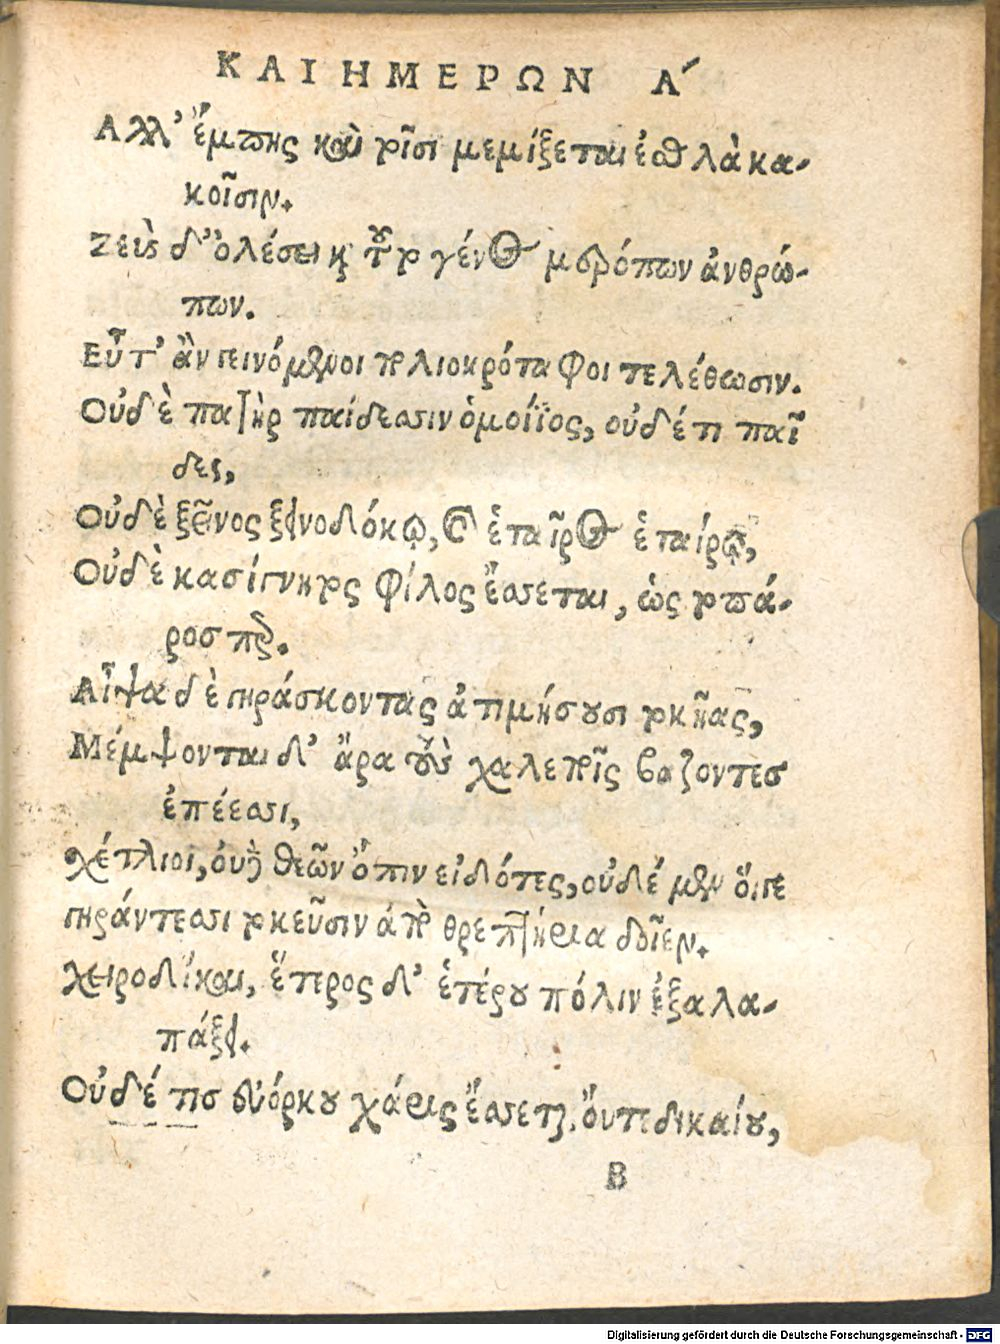 ΚΑΙ ΗΜΕΡΩΝ Α΄
Αλλ' ἔμπης καὶ τοῖσι μεμίξεται ἐσθλὰ κα-
κοῖσιν.
Ζεὺς δ' ὀλέσει καὶ τοῦτο γένος μερόπων ἀνθρώ-
πων.
Εὖτ' ἂν γεινόμενοι πολιοκρόταφοι τελέθωσιν.
Οὐδὲ πατὴρ παίδεσσιν ὁμοίϊος, οὐδέ τι παῖ
δες,
Οὐδὲ ξεῖνος ξεινοδόκῳ, καὶ ἑταῖρος ἑταίρῳ,
Οὐδὲ κασίγνητος φίλος ἔσσεται, ὡς τοπά-
ροσ περ.
Αἶψα δὲ γηράσκοντας ἀτιμήσουσι τοκῆας,
Μέμψονται δ' ἄρα τοὺς χαλεποῖς βαζοντεσ
ἐπέεσσι,
χέτλιοι, ὀυδὲ θεῶν ὄπιν εἰδότες, οὐδέ μεν ὅιγε
γηράντεσσι τοκεῦσιν ἀπὸ θρεπτήρια δοῖεν.
χειροδίκαι, ἕτερος δ' ἑτέρου πόλιν ἐξαλα-
πάξει.
Οὐδέ τισ εὐόρκου χάρις ἔσσεται, ὄυτε δικαίου,
Β
Digitalisierung gefördert durch die Deutsche Forschungsgemeinschaft - DFG